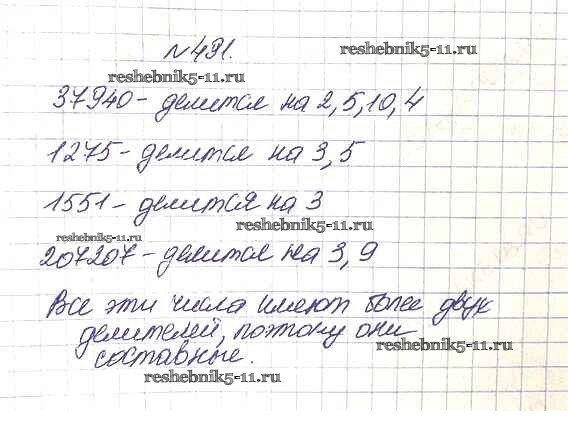 №491.
reshebnik5-11.ru
reshebnik5-11.ru
37940 - делится на 2, 5, 10, 4
1275 - делится на 3, 5
1551 - делится на 3
reshebnik5-11.ru
reshebnik5-11.ru
207207 - делится на 3, 9
Все эти числа имеют более двух
делителей, поэтому они
reshebnik5-11.ru
составные.
reshebnik5-11.ru